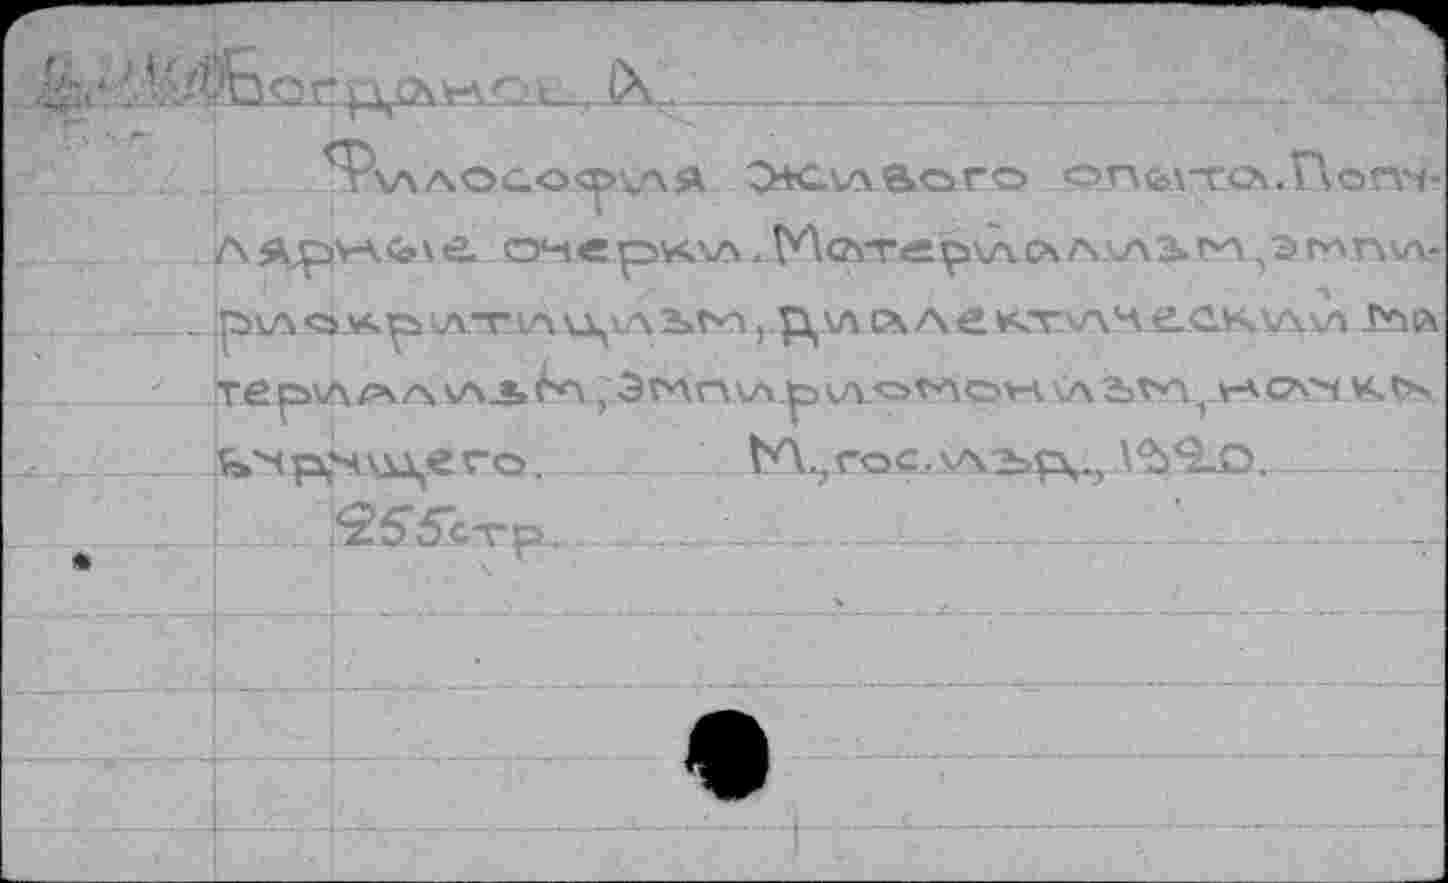 Богданов, А.
Философия живого опыта. Попу-
лярные очерки. Материализм, эмпи-
риокритицизм, диалектический ма
териализм, эмпириомонизм, наука
будущего. М., гос. изд., 1920.
255 стр.